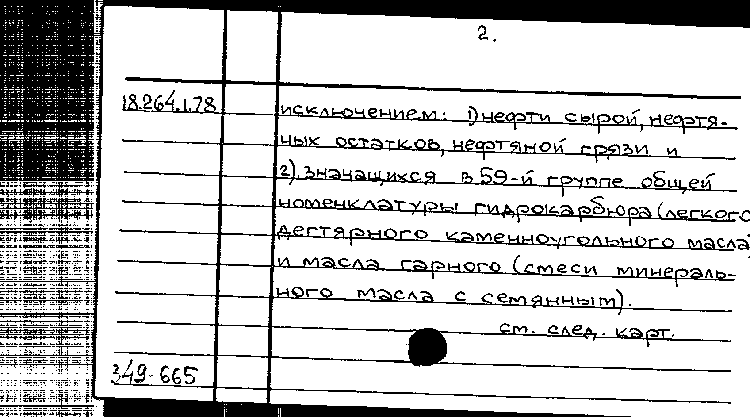 2.
18.264.1.78
исключением: 1) нефти сырой, нефтя-
ных остатков, нефтяной грязи и
2) значащихся в 59-й группе общей
номенклатуры гидрокарбюра (легкого
дегтярного каменноугольного масла)
и масла гарного (смеси минераль-
ного масла с семянным).
см. след. карт.
349-665